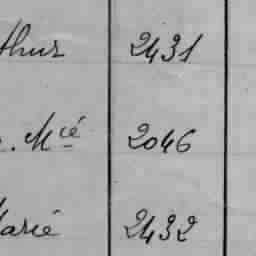 thur 2431
. Mcié 2046
Marié 2432